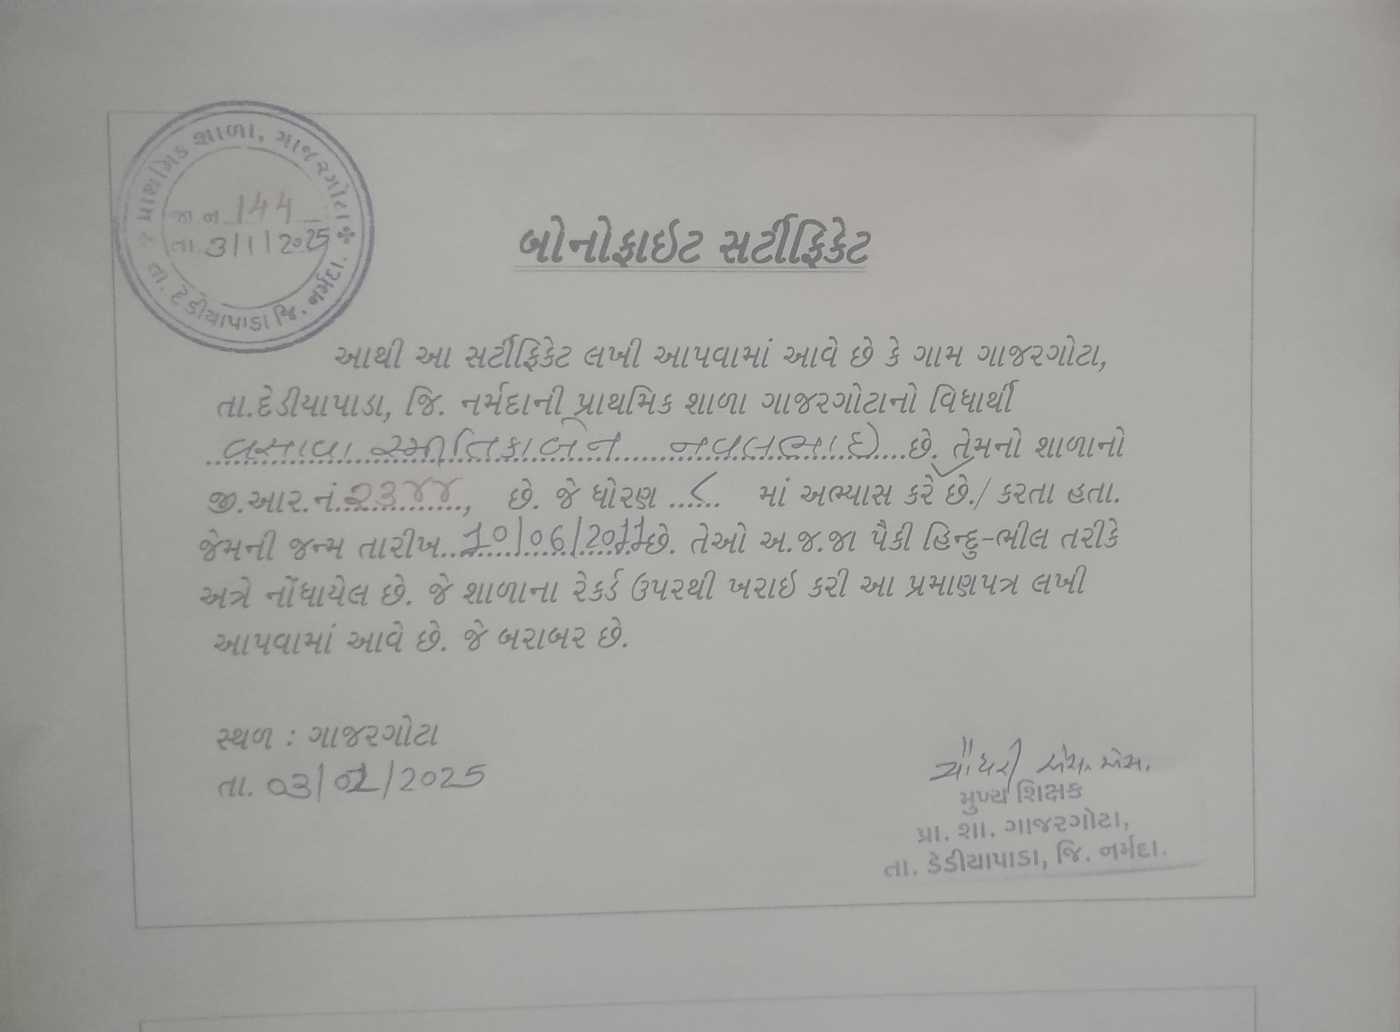 પ્રાથમિક શાળા, ગાજરગોટા
જા નં 144
તા. 3/1/2025
તા. દેડીયાપાડા જિ. નર્મદા.
બોનોફાઇટ સર્ટીફિકેટ
આથી આ સર્ટીફિકેટ લખી આપવામાં આવે છે કે ગામ ગાજરગોટા,
તા.દેડીયાપાડા, જિ. નર્મદાની પ્રાથમિક શાળા ગાજરગોટાનો વિધાર્થી
વસાવા સ્મીતિકાબેન નવલભાઇ છે. તેમનો શાળાનો
જી.આર.નં.૨૩૪૪, છે. જે ધોરણ ૮ માં અભ્યાસ કરે છે./ કરતા હતા.
જેમની જન્મ તારીખ 10/06/2011 છે. તેઓ અ.જ.જા પૈકી હિન્દુ-ભીલ તરીકે
અત્રે નોંધાયેલ છે. જે શાળાના રેકર્ડ ઉપરથી ખરાઇ કરી આ પ્રમાણપત્ર લખી
આપવામાં આવે છે. જે બરાબર છે.
સ્થળ : ગાજરગોટા
તા. 03/01/2025
ચૌધરી એસ. એસ.
મુખ્ય શિક્ષક
પ્રા. શા. ગાજરગોટા,
તા. ડેડીયાપાડા, જિ. નર્મદા.